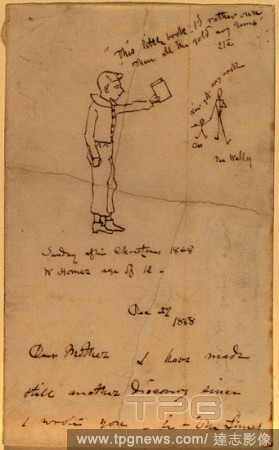 "This little book I'd rather own
than all the gold any
I've got my
Sunday after Christmas 1848
W Homer age of 12 -
Dec 27
1888
Dear Mother I have made
still another Discovery since
I wrote you
TPG
www.tpgnews.com / 達志影像